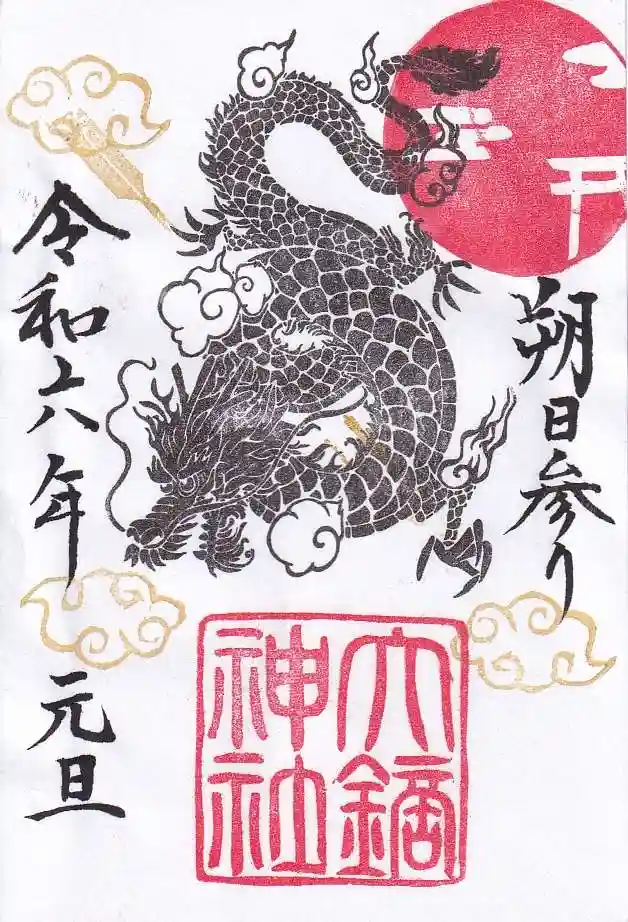 朔日参り
大鏑
神社
令和六年 元旦